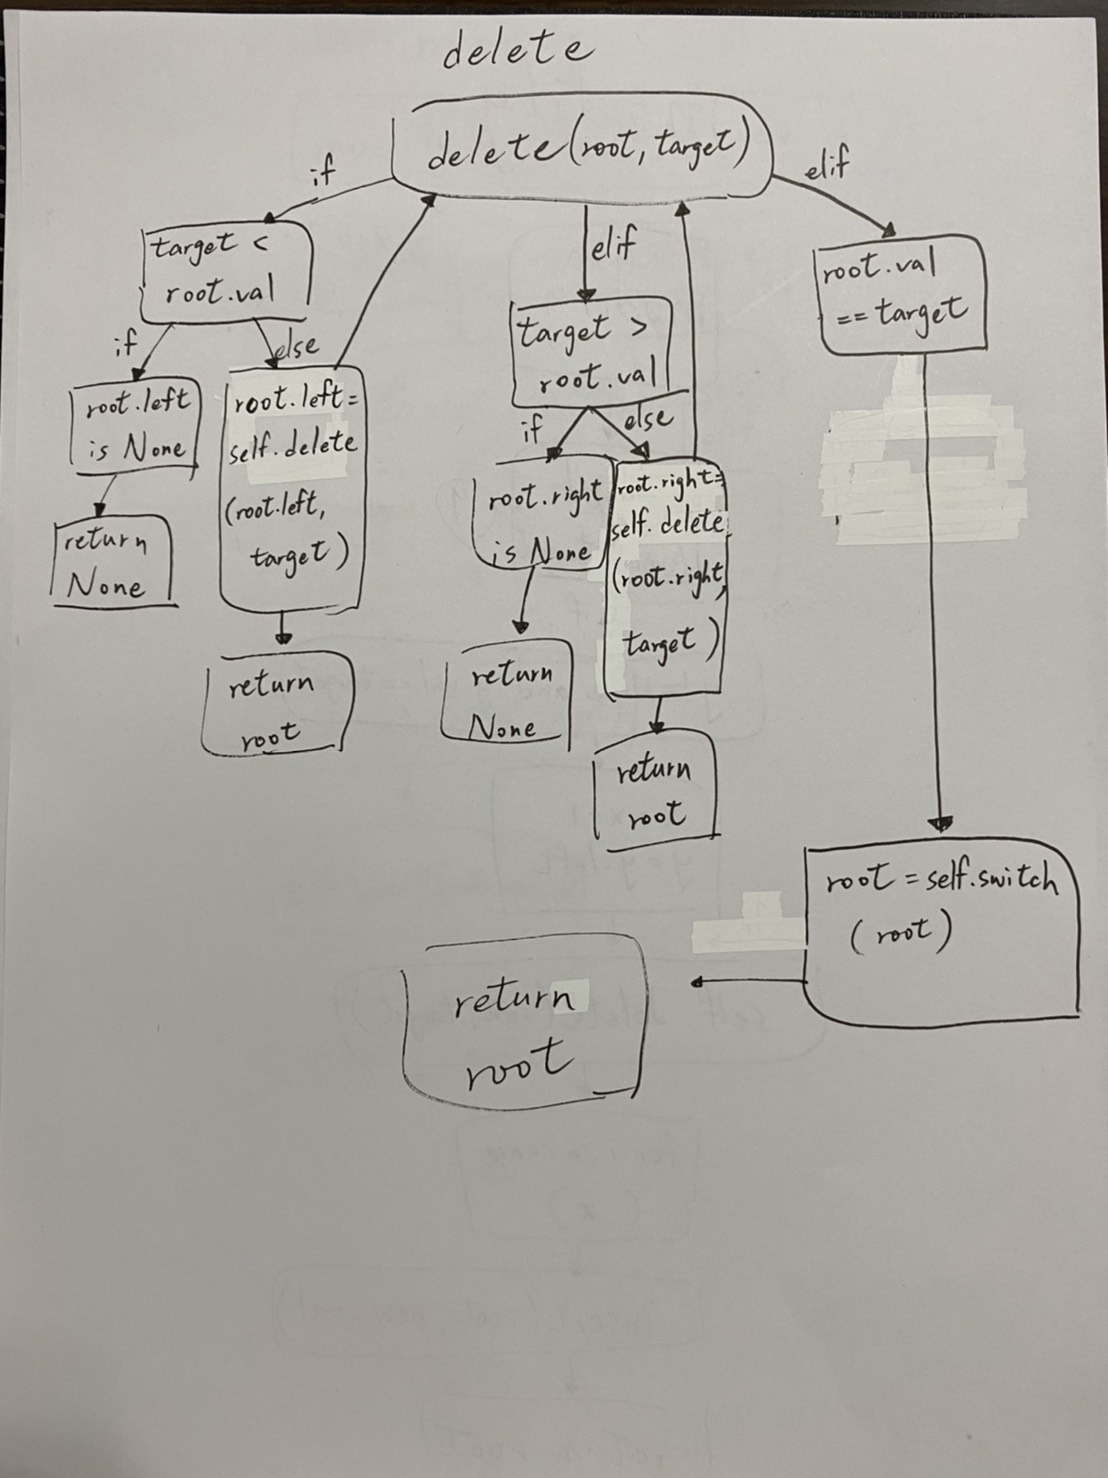 delete
delete(root, target)
if
elif
elif
target <
root.val
if
else
root.left
is None
return
None
root.left =
self.delete
(root.left,
target)
return
root
target >
root.val
if
else
root.right
is None
return
None
root.right=
self.delete
(root.right,
target)
return
root
root.val
== target
root = self.switch
(root)
return
root